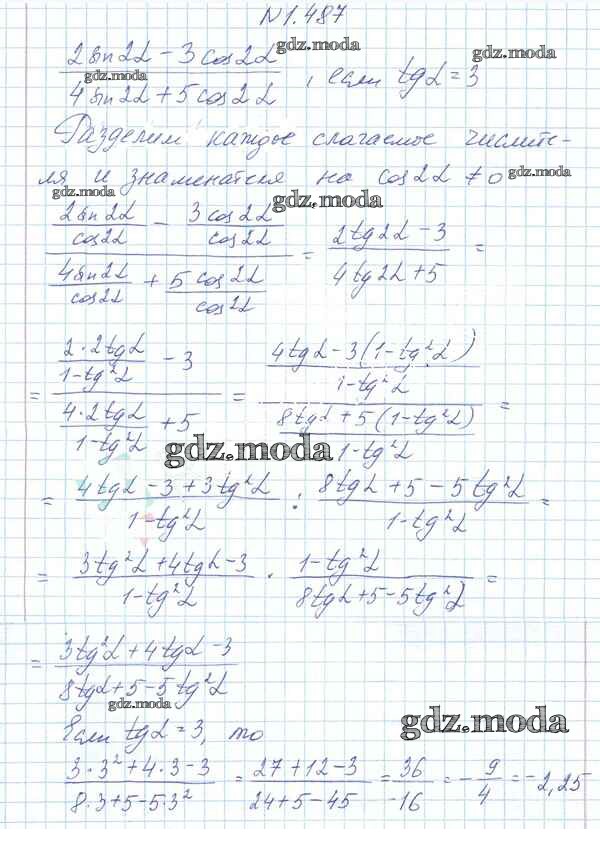 №1.487
2sin2α - 3cos2α / 4sin2α + 5cos2α , если tgα = 3
gdz.moda
gdz.moda
gdz.moda
Разделим каждое слагаемое числите-
ля и знаменателя на cos2α ≠ 0
gdz.moda
gdz.moda
gdz.moda
(2sin2α/cos2α - 3cos2α/cos2α) / (4sin2α/cos2α + 5cos2α/cos2α) = (2tg2α - 3) / (4tg2α + 5) =
= (2·2tgα/1-tg²α - 3) / (4·2tgα/1-tg²α + 5) = (4tgα - 3(1-tg²α) / 1-tg²α) / (8tgα + 5(1-tg²α) / 1-tg²α) =
gdz.moda
= 4tgα - 3 + 3tg²α / 1-tg²α : 8tgα + 5 - 5tg²α / 1-tg²α =
= 3tg²α + 4tgα - 3 / 1-tg²α · 1-tg²α / 8tgα + 5 - 5tg²α =
= 3tg²α + 4tgα - 3 / 8tgα + 5 - 5tg²α
gdz.moda
gdz.moda
Если tgα = 3, то
3·3² + 4·3 - 3 / 8·3 + 5 - 5·3² = 27 + 12 - 3 / 24 + 5 - 45 = 36 / -16 = - 9/4 = -2,25